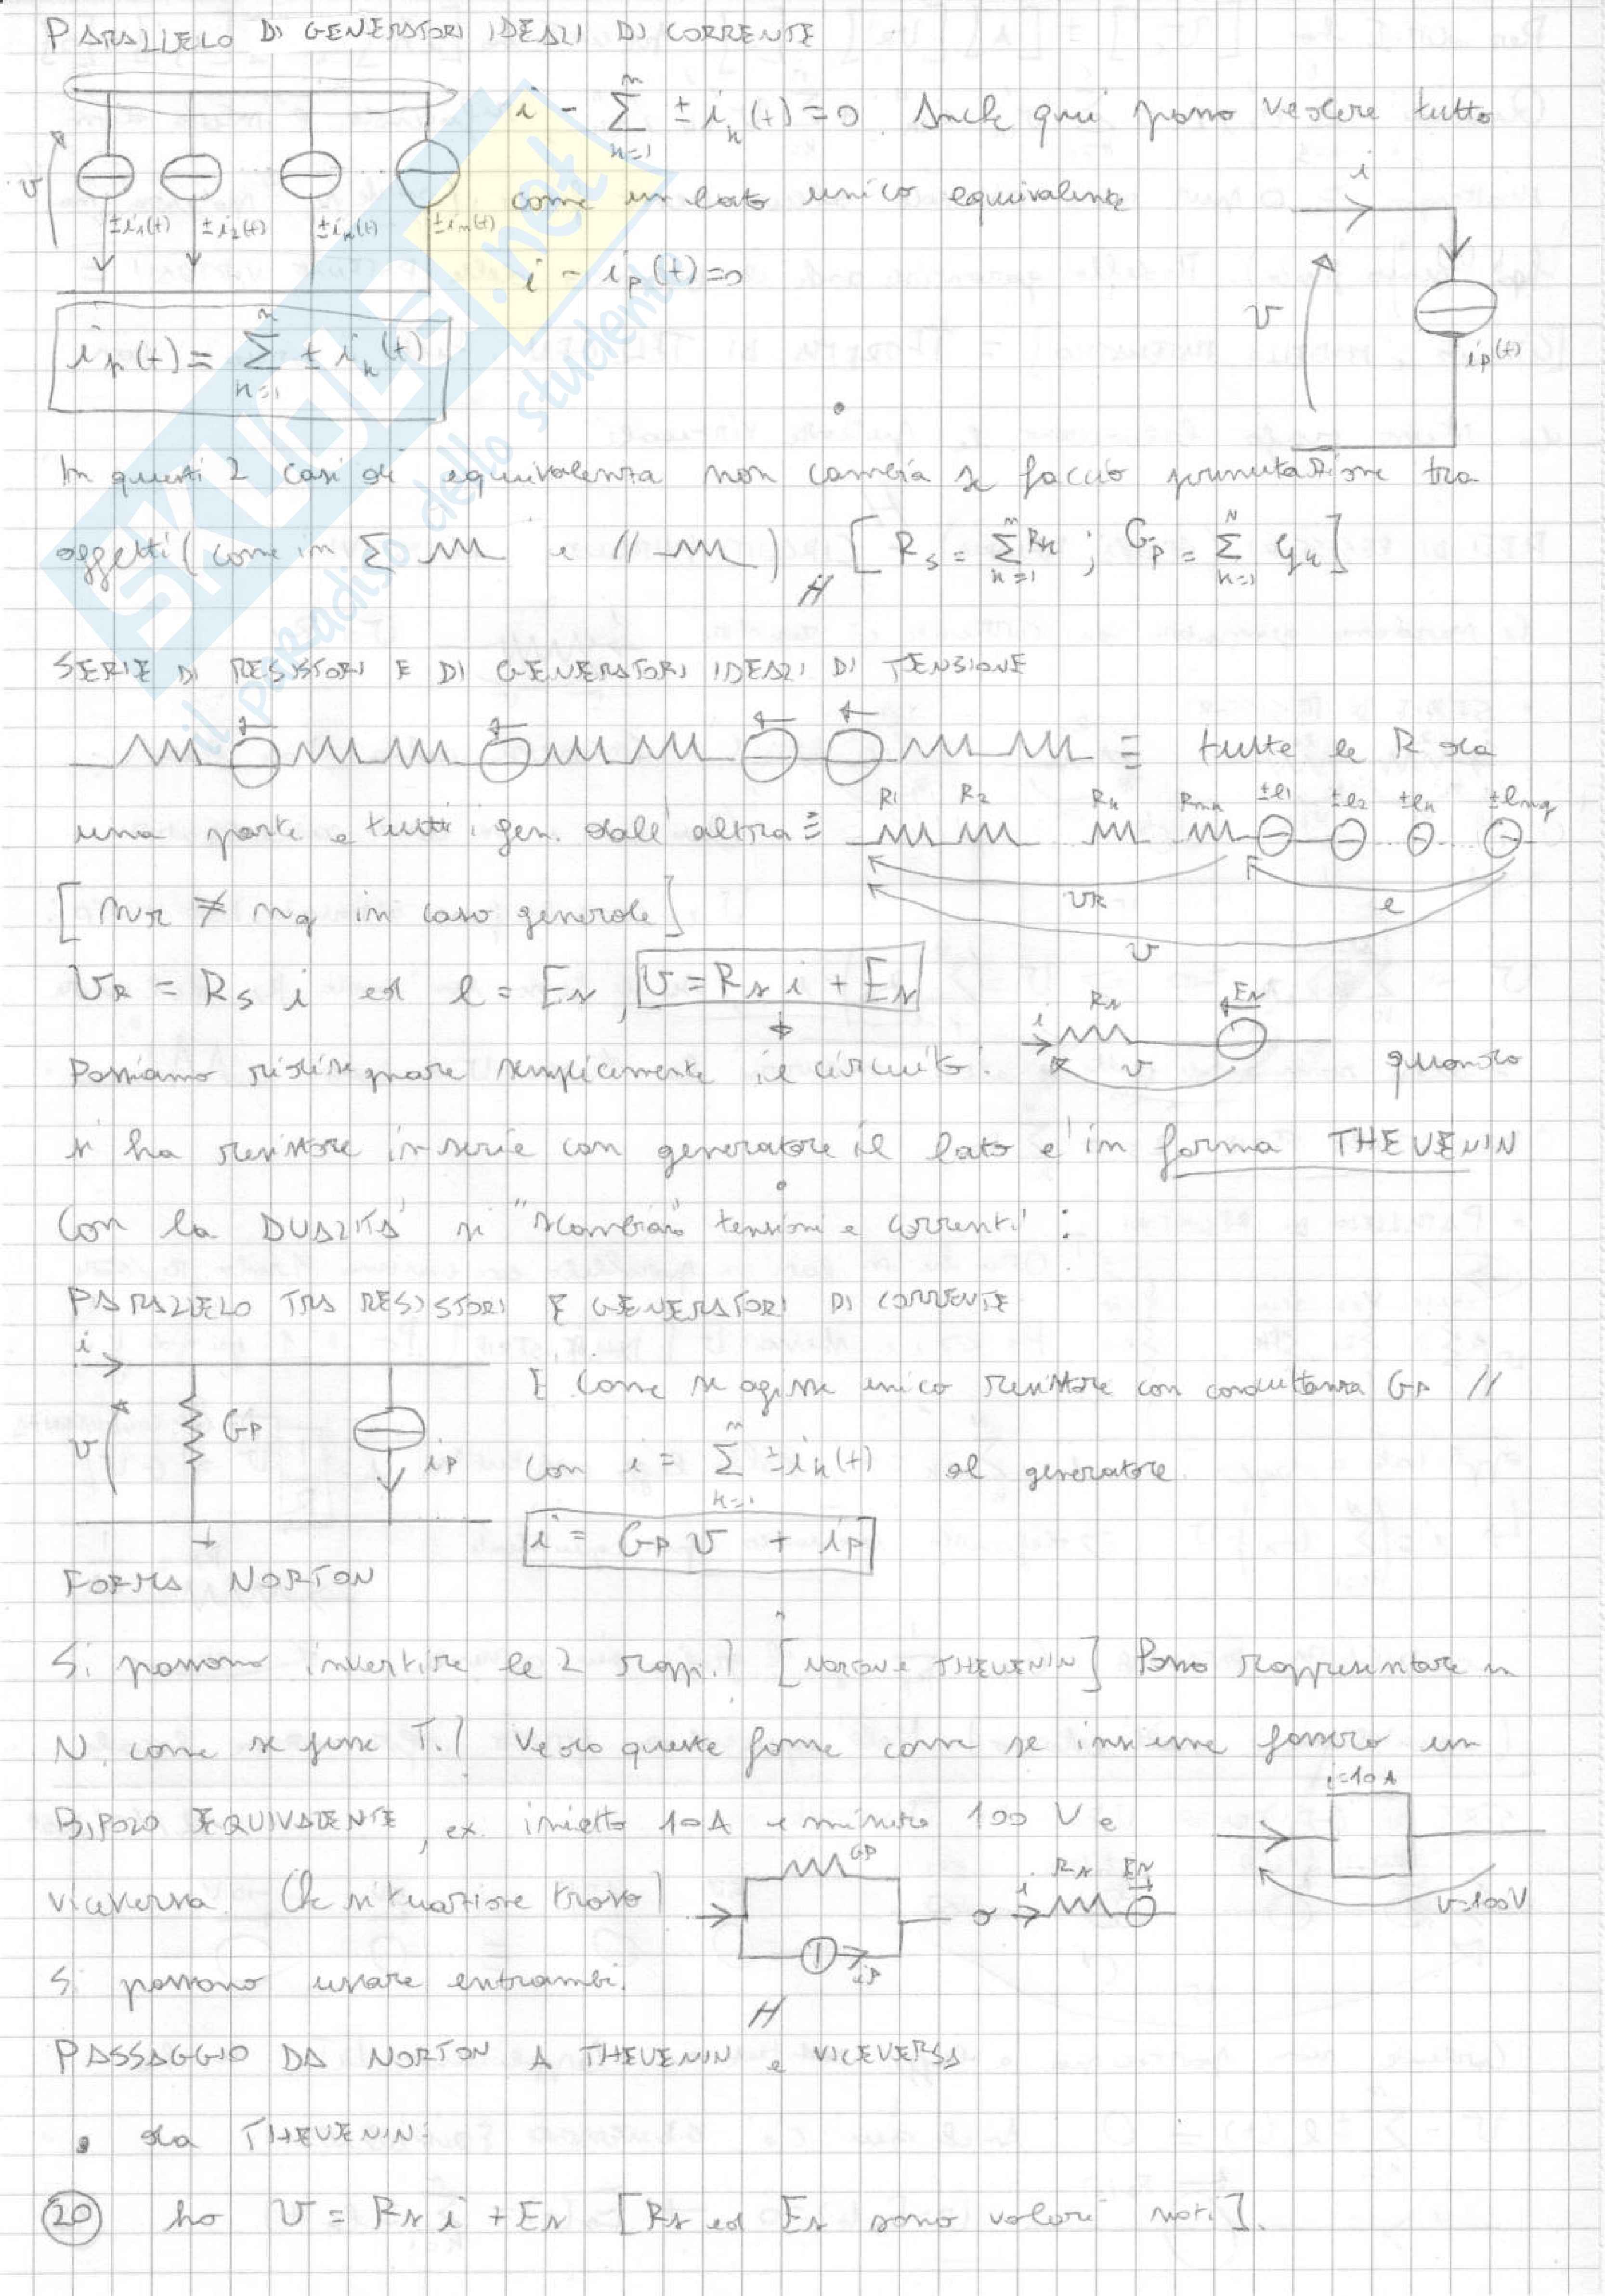 PARALLELO DI GENERATORI IDEALI DI CORRENTE
i - Σ ± iₖ(t) = 0. Anche qui posso vedere tutto
n
k=1
come un lato unico equivalente
i
v
±i₁(t) ±i₂(t) ±iₖ(t) ±iₙ(t)
i - iₚ(t) = 0
v
iₚ(t)
iₚ(t) = Σ ± iₖ(t)
n
k=1
In questi 2 casi di equivalenza non cambia se faccio permutazione tra
oggetti (come in Σ e //) [Rs = Σ Rk ; Gp = Σ Gk]
n
k=1
N
k=1
SERIE DI RESISTORI E DI GENERATORI IDEALI DI TENSIONE
≡ tutte le R da
R1 R2 Rk Rnr ±e1 ±e2 ±ek ±eng
una parte e tutti i gen. dall'altra ≡
vR e
[nr ≠ ng in caso generale]
v
vR = Rs i ed e = Es, v = Rs i + Es
i Rs Es
v
Possiamo ridisegnare semplicemente il circuito: quando
si ha resistore in serie con generatore il lato e' in forma THEVENIN
Con la DUALITA' si "scambiano" tensioni e correnti:
PARALLELO TRA RESISTORI E GENERATORI DI CORRENTE
i
v GP iP
E come se agisse unico resistore con conduttanza GP //
con i = Σ ± iₖ(t) al generatore
n
k=1
i = GP v + iP
FORMA NORTON
Si possono invertire le 2 rapp.! [NORTON e THEVENIN] Posso rappresentare in
N. come se fosse T.! Vedo queste forme come se insieme fossero un
BIPOLO EQUIVALENTE, ex. inietto 10A e misuro 100 V e
i=10A
v=100V
viceversa. Che situazione trovo?
GP
iP
o
i Rs Es
Si possono usare entrambi.
PASSAGGIO DA NORTON A THEVENIN e VICEVERSA
• da THEVENIN:
20 ho v = Rs i + Es [Rs ed Es sono valori noti].
SKUOLA.net
il paradiso dello studente